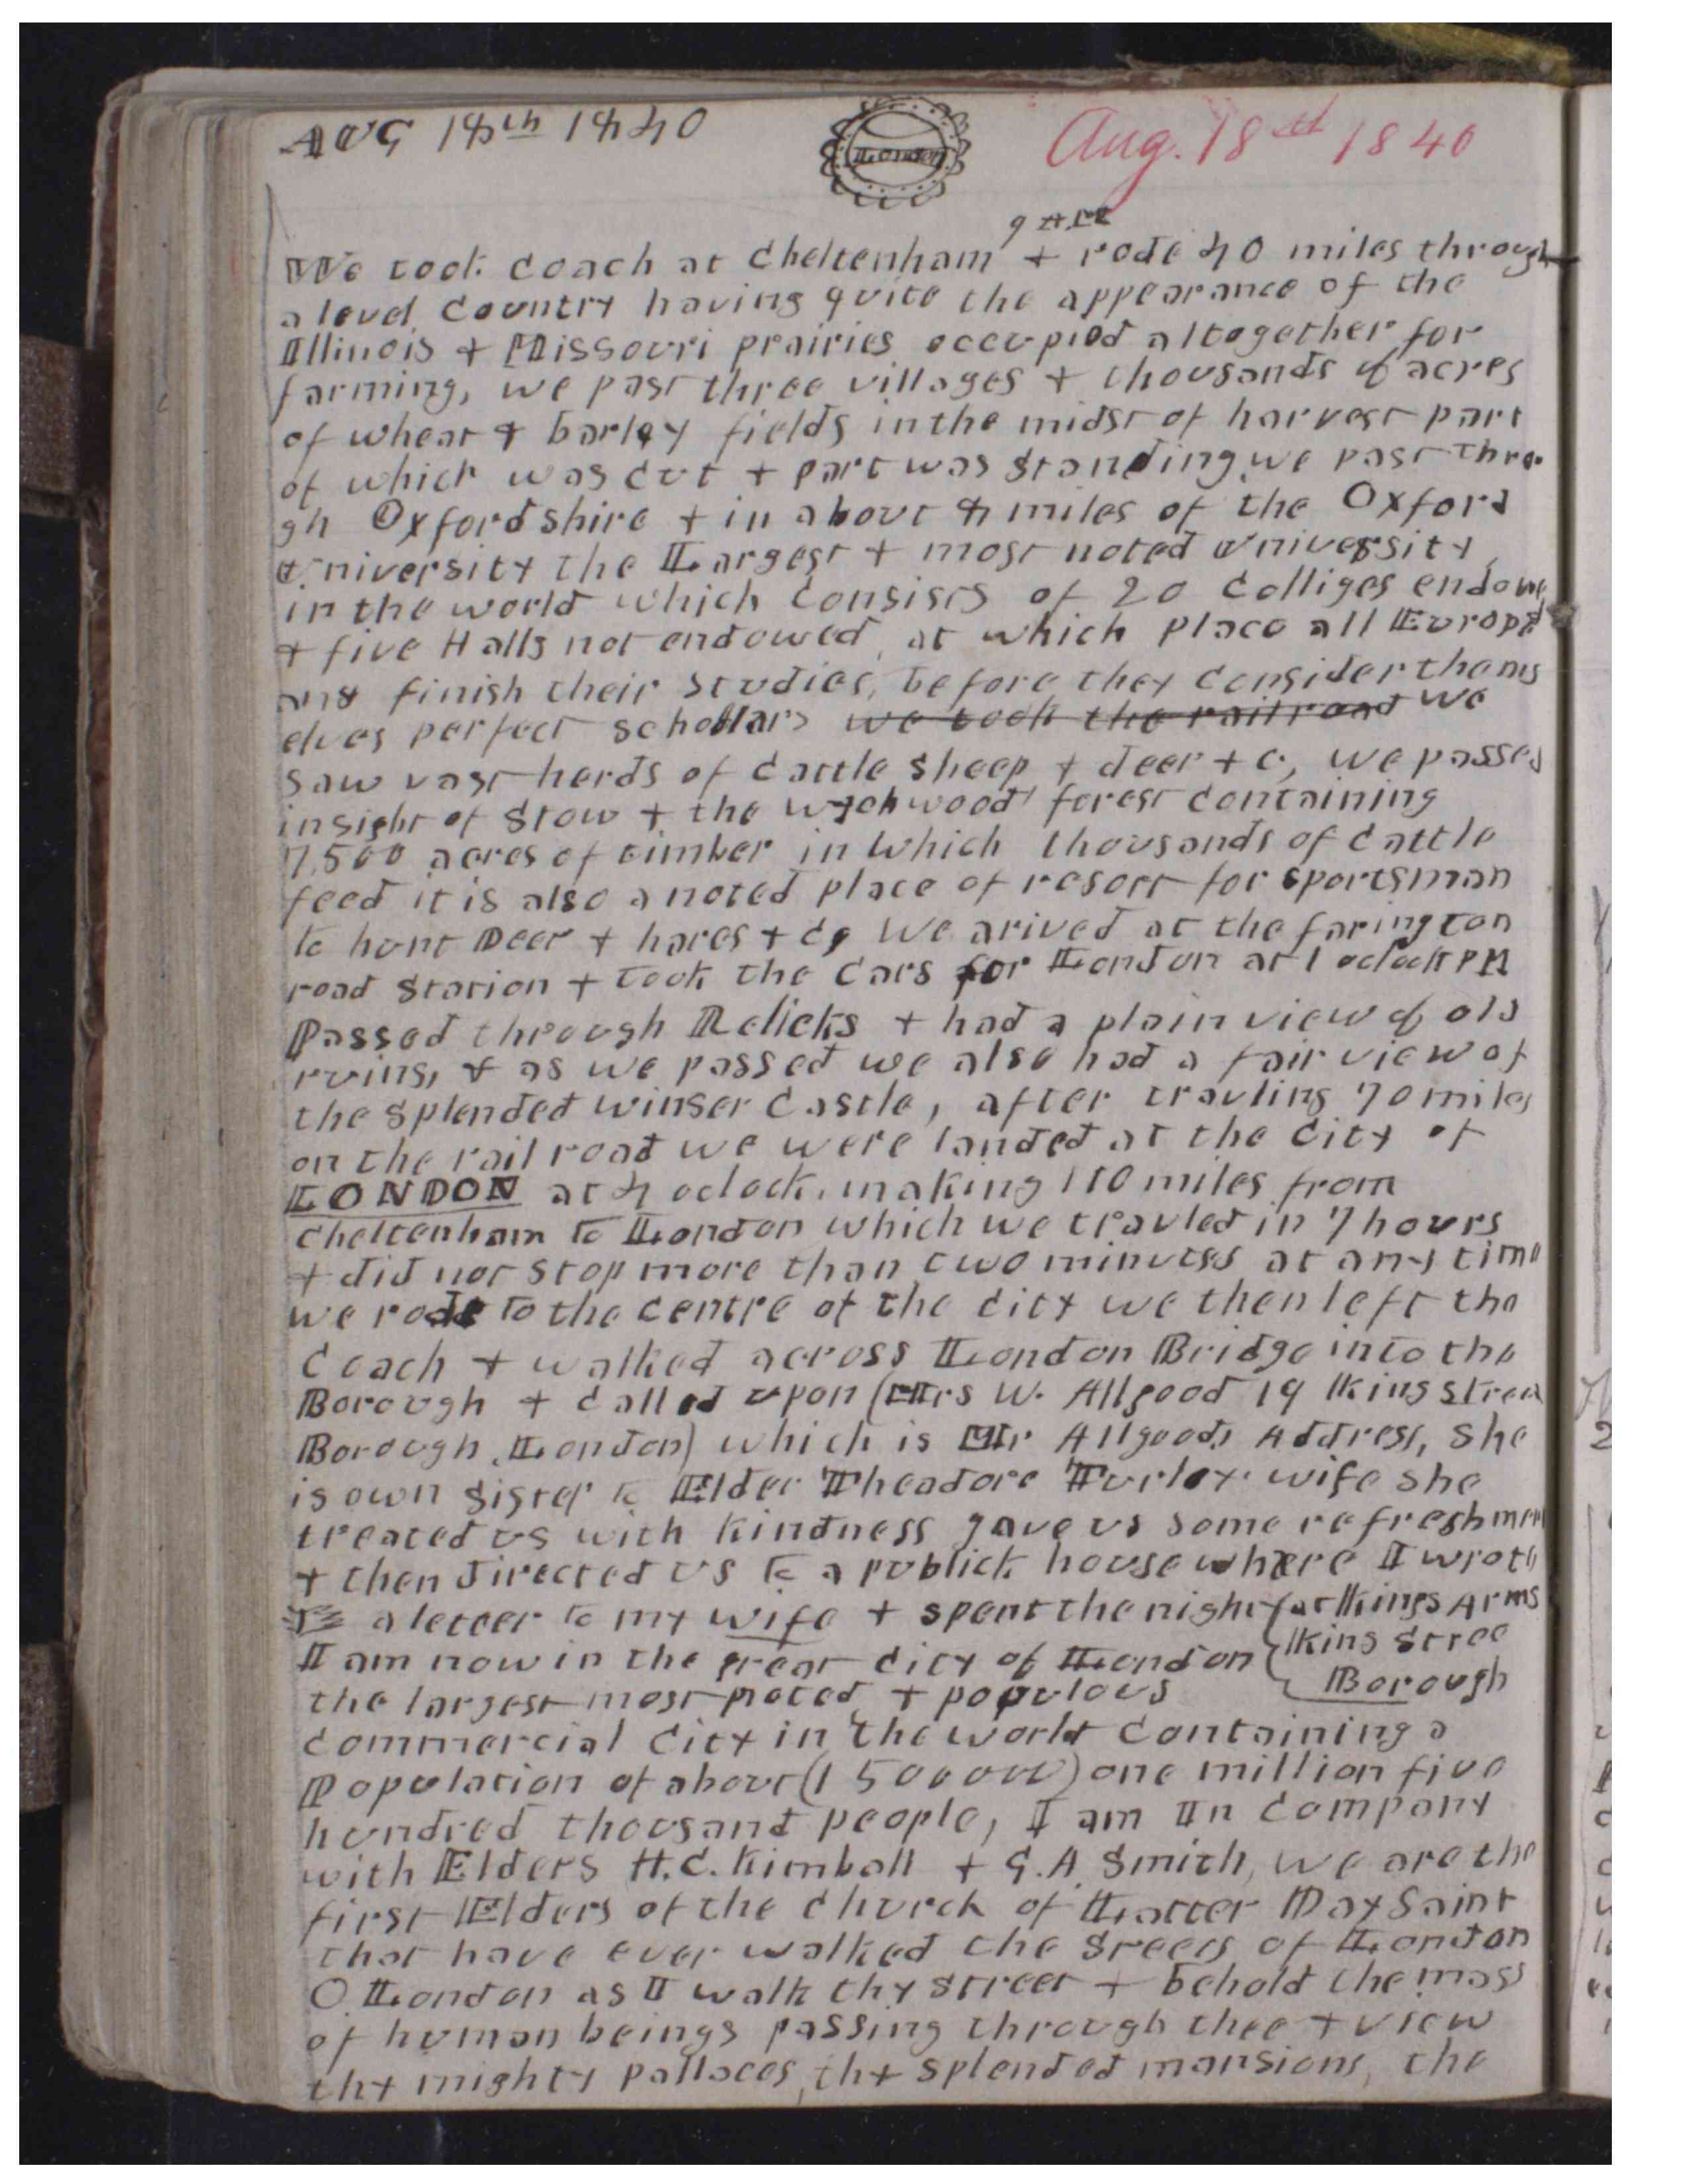 AUG 18th 1840
London
Aug. 18th 1840
9 A.M.
We took coach at Cheltenham + rode 40 miles through
a level Country having quite the appearance of the
Illinois + Missouri prairies occupied altogether for
farming, we past three villages + thousands of acres
of wheat + barley fields in the midst of harvest part
of which was cut + part was standing we past thro
gh Oxfordshire + in about 8 miles of the Oxford
University the Largest + most noted university
in the world which consists of 20 Colliges endow
+ five Halls not endowed, at which place all Europe
ans finish their studies, before they consider thems
elves perfect schollars we took the railroad we
saw vast herds of Cattle Sheep + deer + c, we passed
in sight of Stow + the wychwood forest containing
7,500 acres of timber in which thousands of cattle
feed it is also a noted place of resort for sportsman
to hunt Deer + hares + c, We arived at the farington
road Station + took the Cars for London at 1 oclock PM
Passed through Relicks + had a plain view of old
ruins, + as we passed we also had a fair view of
the splended winser Castle, after travling 70 miles
on the rail road we were landed at the City of
LONDON at 4 oclock, making 110 miles from
Cheltenham to London which we travled in 7 hours
+ did not stop more than two minutes at any time
we rode to the centre of the city we then left the
Coach + walked across London Bridge into the
Borough + called upon (Mrs W. Allgood 19 King Street
Borough, London) which is Mr Allgoods Address, she
is own Sister to Elder Theadore Turley wife she
treated us with kindness gave us some refreshmen
+ then directed us to a publick house where I wrote
a letter to my wife + spent the night (at Kings Arms
I am now in the great City of London { King Stree
the largest most noted + populous Borough
commercial City in the world containing a
Population of about (1500000) one million five
hundred thousand people, I am In company
with Elders H.C. Kimball + G.A. Smith, we are the
first Elders of the Church of Latter Day Saint
that have ever walked the Sreets of London
O London as I walk thy street + behold the mass
of human beings passing through thee + view
thy mighty pallaces, thy splended mansions, the